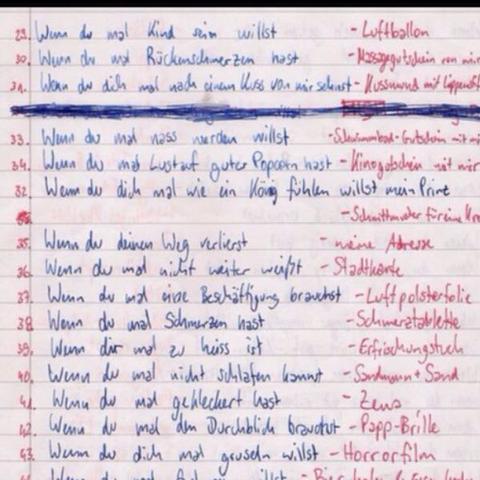 29. Wenn du mal Kind sein willst - Luftballon
30. Wenn du mal Rückenschmerzen hast - Massagegutschein von mir
31. Wenn du dich mal nach einem Kuss von mir sehnst - Kussmund mit
33. Wenn du mal nass werden willst - Schwimmbad-Gutschein mit
34. Wenn du mal Lust auf guter Popcorn hast - Kinogutschein mit mir
32. Wenn du dich mal wie ein König fühlen willst mein Prinz
- Schnittmuster für eine
35. Wenn du deinen Weg verlierst - meine Adresse
36. Wenn du mal nicht weiter weißt - Stadtkarte
37. Wenn du mal eine Beschäftigung brauchst - Luftpolsterfolie
38. Wenn du mal Schmerzen hast - Schmerztablette
39. Wenn dir mal zu heiss ist - Erfrischungstuch
40. Wenn du mal nicht schlafen kannst - Sandmann + Sand
41. Wenn du mal gekleckert hast - Zewa
42. Wenn du mal den Durchblick brauchst - Papp-Brille
43. Wenn du dich mal gruseln willst - Horrorfilm
Wenn du mal willst